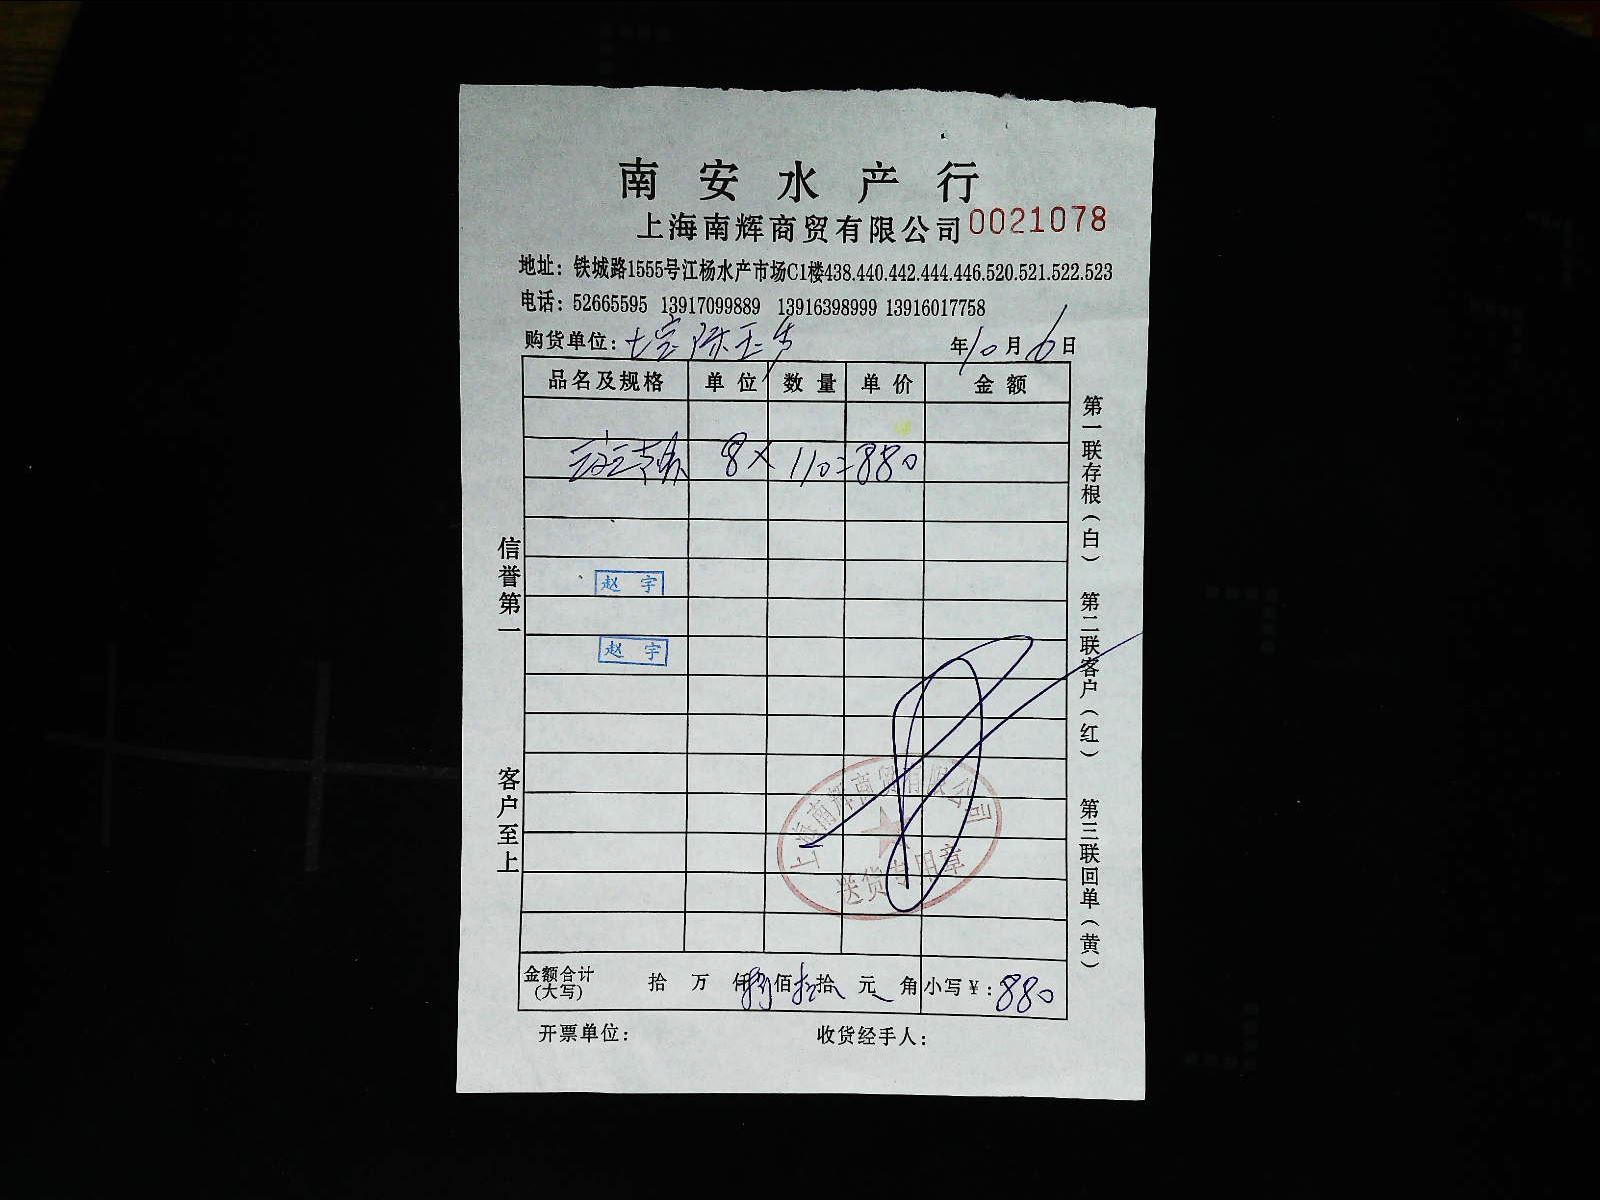 南安水产行
上海南辉商贸有限公司 0021078
地址：铁城路1555号江杨水产市场C1楼438.440.442.444.446.520.521.522.523
电话：52665595 13917099889 13916398999 13916017758
购货单位：七宝陈 年10月6日
品名及规格 单位 数量 单价 金额
8× 110=880
赵宇
赵宇
上海南辉商贸有限公司
送货专用章
金额合计(大写) 拾 万 仟捌佰捌拾 元 角 小写¥：880
开票单位： 收货经手人：
信誉第一 客户至上
第一联存根（白） 第二联客户（红） 第三联回单（黄）